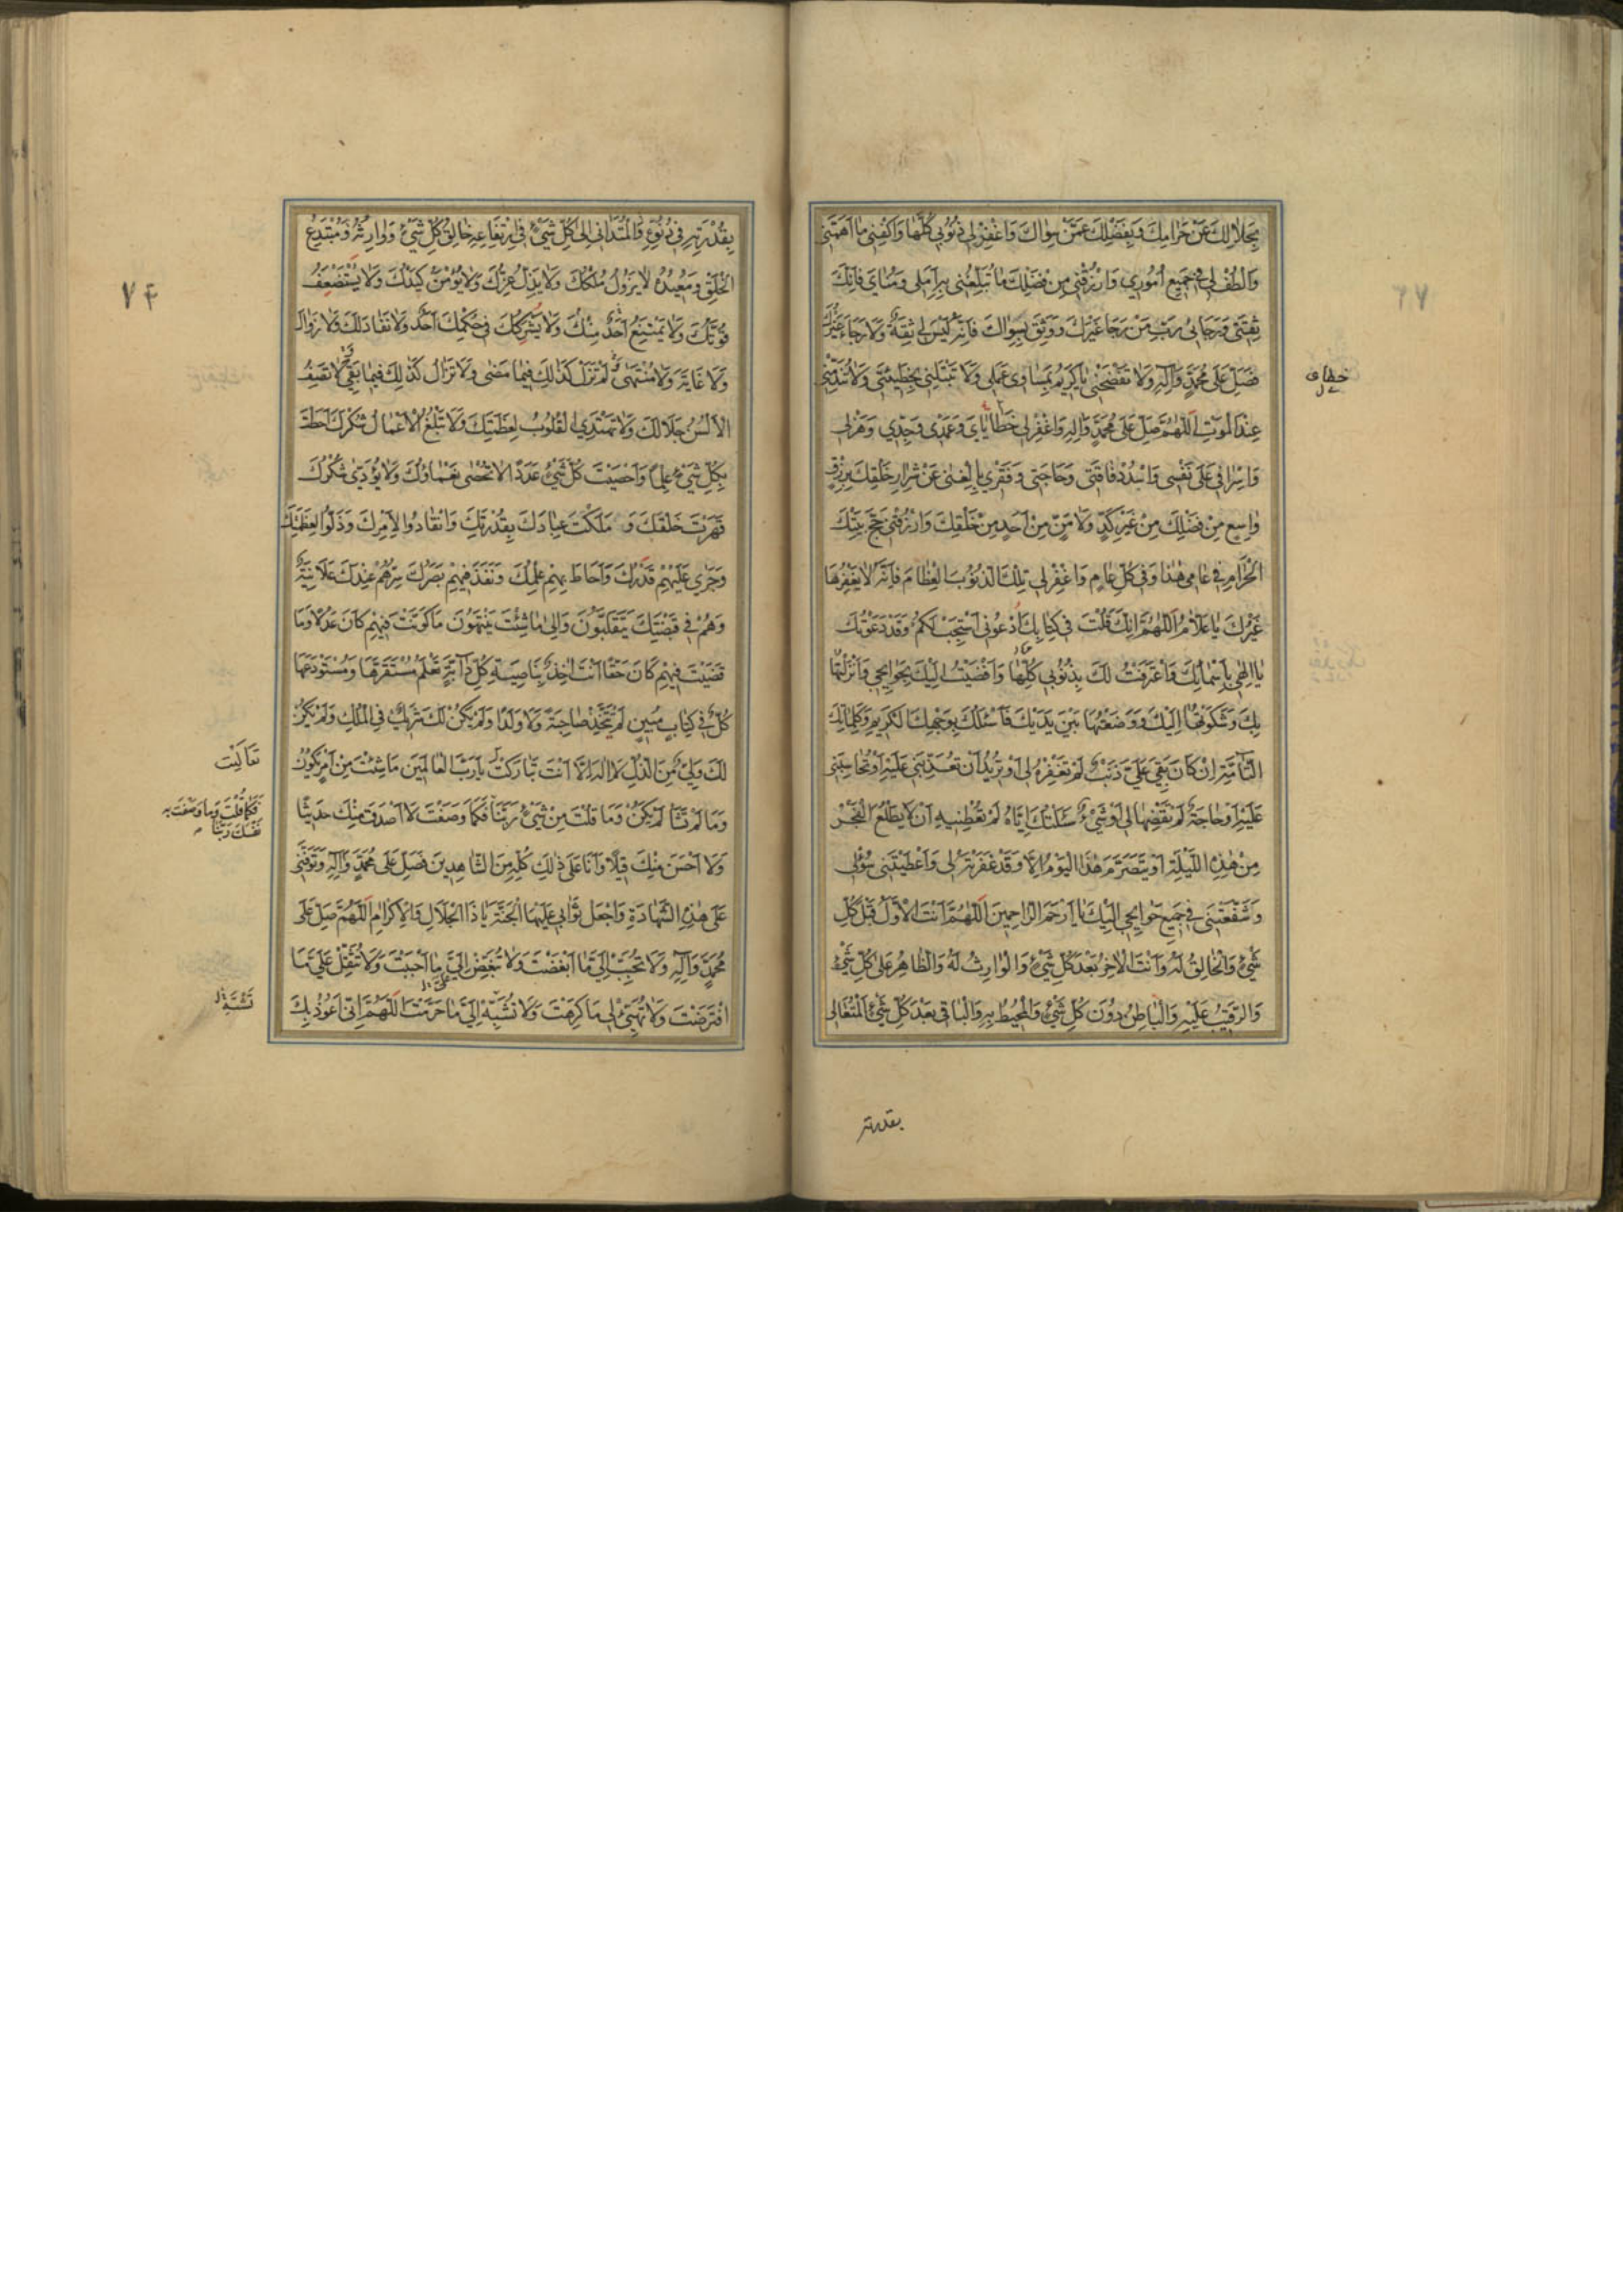 بِحَلَالِكَ عَنْ حَرَامِكَ وَبِفَضْلِكَ عَمَّنْ سِوَاكَ وَاغْفِرْ لِي ذُنُوبِي كُلَّهَا وَاكْفِنِي مَا اَهَمَّنِي
وَالْطُفْ لِي فِي جَمِيعِ اُمُورِي وَارْزُقْنِي مِنْ فَضْلِكَ مَا تُبَلِّغُنِي بِهِ اَمَلِي وَمُنَايَ فَاِنَّكَ
ثِقَتِي وَرَجَائِي رَبِّ مَنْ رَجَا غَيْرَكَ وَوَثِقَ بِسِوَاكَ فَاِنَّهُ لَيْسَ لِي ثِقَةٌ وَلَا رَجَاءٌ غَيْرُكَ
فَصَلِّ عَلَى مُحَمَّدٍ وَآلِهِ وَلَا تَفْضَحْنِي يَا كَرِيمُ بِمَسَاوِي عَمَلِي وَلَا تَبْتَلِنِي بِخَطِيئَتِي وَلَا تُنَدِّمْنِي
عِنْدَ الْمَوْتِ اَللّٰهُمَّ صَلِّ عَلَى مُحَمَّدٍ وَآلِهِ وَاغْفِرْ لِي خَطَايَايَ وَعَمْدِي وَجِدِّي وَهَزْلِي
وَاِسْرَافِي عَلَى نَفْسِي وَاسْدُدْ فَاقَتِي وَحَاجَتِي وَفَقْرِي بِالْغِنٰى عَنْ شِرَارِ خَلْقِكَ بِرِزْقٍ
وَاسِعٍ مِنْ فَضْلِكَ مِنْ غَيْرِ كَدٍّ وَلَا مَنٍّ مِنْ اَحَدٍ مِنْ خَلْقِكَ وَارْزُقْنِي حَجَّ بَيْتِكَ
الْحَرَامِ فِي عَامِي هٰذَا وَفِي كُلِّ عَامٍ وَاغْفِرْ لِي تِلْكَ الذُّنُوبَ الْعِظَامَ فَاِنَّهُ لَا يَغْفِرُهَا
غَيْرُكَ يَا عَلَّامُ اَللّٰهُمَّ اِنَّكَ قُلْتَ فِي كِتَابِكَ اُدْعُونِي اَسْتَجِبْ لَكُمْ وَقَدْ دَعَوْتُكَ
يَا اِلٰهِي بِاَسْمَائِكَ وَاعْتَرَفْتُ لَكَ بِذُنُوبِي كُلِّهَا وَاَفْضَيْتُ اِلَيْكَ بِحَوَائِجِي وَاَنْزَلْتُهَا
بِكَ وَشَكَوْتُهَا اِلَيْكَ وَوَضَعْتُهَا بَيْنَ يَدَيْكَ فَاَسْئَلُكَ بِوَجْهِكَ الْكَرِيمِ وَكَلِمَاتِكَ
التَّامَّةِ اِنْ كَانَ بَقِيَ عَلَيَّ ذَنْبٌ لَمْ تَغْفِرْهُ لِي اَوْ تُرِيدُ اَنْ تُعَذِّبَنِي عَلَيْهِ اَوْ تُحَاسِبَنِي
عَلَيْهِ اَوْ حَاجَةٌ لَمْ تَقْضِهَا لِي اَوْ شَيْءٌ سَئَلْتُكَ اِيَّاهُ لَمْ تُعْطِنِيهِ اَنْ لَا يَطْلُعَ الْفَجْرُ
مِنْ هٰذِهِ اللَّيْلَةِ اَوْ يَتَصَرَّمَ هٰذَا الْيَوْمُ اِلَّا وَقَدْ غَفَرْتَهُ لِي وَاَعْطَيْتَنِي سُؤْلِي
وَشَفَّعْتَنِي فِي جَمِيعِ حَوَائِجِي اِلَيْكَ يَا اَرْحَمَ الرَّاحِمِينَ اَللّٰهُمَّ اَنْتَ الْاَوَّلُ قَبْلَ كُلِّ
شَيْءٍ وَالْخَالِقُ لَهُ وَاَنْتَ الْآخِرُ بَعْدَ كُلِّ شَيْءٍ وَالْوَارِثُ لَهُ وَالظَّاهِرُ عَلَى كُلِّ شَيْءٍ
وَالرَّقِيبُ عَلَيْهِ وَالْبَاطِنُ دُونَ كُلِّ شَيْءٍ وَالْمُحِيطُ بِهِ وَالْبَاقِي بَعْدَ كُلِّ شَيْءٍ الْمُتَعَالِي
بقدرته
٧٤
بِقُدْرَتِهِ فِي دُنُوِّهِ وَالْمُتَدَانِي اِلَى كُلِّ شَيْءٍ فِي ارْتِفَاعِهِ خَالِقُ كُلِّ شَيْءٍ وَوَارِثُهُ وَمُبْتَدِعُ
الْخَلْقِ وَمُعِيدُهُ لَا يَزُولُ مُلْكُكَ وَلَا يَذِلُّ عِزُّكَ وَلَا يُؤْمَنُ كَيْدُكَ وَلَا يُسْتَضْعَفُ
قُوَّتُكَ وَلَا يَمْتَنِعُ اَحَدٌ مِنْكَ وَلَا يَشْرَكُكَ فِي حُكْمِكَ اَحَدٌ وَلَا نَفَادَ لَكَ وَلَا زَوَالَ
وَلَا غَايَةَ وَلَا مُنْتَهٰى لَمْ تَزَلْ كَذٰلِكَ فِيمَا مَضٰى وَلَا تَزَالُ كَذٰلِكَ فِيمَا بَقِيَ لَا تَصِفُ
الْاَلْسُنُ جَلَالَكَ وَلَا تَهْتَدِي الْقُلُوبُ لِعَظَمَتِكَ وَلَا تَبْلُغُ الْاَعْمَالُ شُكْرَكَ اَحَطْتَ
بِكُلِّ شَيْءٍ عِلْمًا وَاَحْصَيْتَ كُلَّ شَيْءٍ عَدَدًا لَا تُحْصٰى نَعْمَاؤُكَ وَلَا يُؤَدّٰى شُكْرُكَ
قَهَرْتَ خَلْقَكَ وَمَلَكْتَ عِبَادَكَ بِقُدْرَتِكَ وَانْقَادُوا لِاَمْرِكَ وَذَلُّوا لِعَظَمَتِكَ
وَجَرٰى عَلَيْهِمْ قَدَرُكَ وَاَحَاطَ بِهِمْ عِلْمُكَ وَنَفَذَ فِيهِمْ بَصَرُكَ سِرُّهُمْ عِنْدَكَ عَلَانِيَةٌ
وَهُمْ فِي قَبْضَتِكَ يَتَقَلَّبُونَ وَاِلٰى مَا شِئْتَ يَنْتَهُونَ مَا كَوَّنْتَ فِيهِمْ كَانَ عَدْلًا وَمَا
قَضَيْتَ فِيهِمْ كَانَ حَقًّا اَنْتَ آخِذٌ بِنَاصِيَةِ كُلِّ دَابَّةٍ تَعْلَمُ مُسْتَقَرَّهَا وَمُسْتَوْدَعَهَا
كُلٌّ فِي كِتَابٍ مُبِينٍ لَمْ تَتَّخِذْ صَاحِبَةً وَلَا وَلَدًا وَلَمْ يَكُنْ لَكَ شَرِيكٌ فِي الْمُلْكِ وَلَمْ يَكُنْ
لَكَ وَلِيٌّ مِنَ الذُّلِّ لَا اِلٰهَ اِلَّا اَنْتَ تَبَارَكْتَ يَا رَبَّ الْعَالَمِينَ مَا شِئْتَ مِنْ اَمْرٍ يَكُونُ
وَمَا لَمْ تَشَأْ لَمْ يَكُنْ وَمَا قُلْتَ مِنْ شَيْءٍ رَبَّنَا فَكَمَا وَصَفْتَ لَا اَصْدَقَ مِنْكَ حَدِيثًا
وَلَا اَحْسَنَ مِنْكَ قِيلًا وَاَنَا عَلَى ذٰلِكَ كُلِّهِ مِنَ الشَّاهِدِينَ فَصَلِّ عَلَى مُحَمَّدٍ وَآلِهِ وَتَوَفَّنِي
عَلَى هٰذِهِ الشَّهَادَةِ وَاجْعَلْ ثَوَابِي عَلَيْهَا الْجَنَّةَ يَا ذَا الْجَلَالِ وَالْاِكْرَامِ اَللّٰهُمَّ صَلِّ عَلَى
مُحَمَّدٍ وَآلِهِ وَلَا تُحَبِّبْ اِلَيَّ مَا اَبْغَضْتَ وَلَا تُبَغِّضْ اِلَيَّ مَا اَحْبَبْتَ وَلَا تُثَقِّلْ عَلَيَّ مَا
افْتَرَضْتَ وَلَا تُهَيِّئْ لِي مَا كَرِهْتَ وَلَا تُشَبِّهْ اِلَيَّ مَا حَرَّمْتَ اَللّٰهُمَّ اِنِّي اَعُوذُ بِكَ
تَعَالَيْتَ
فَكَمَا قُلْتَ وَبِمَا وَصَفْتَ بِهِ
نَفْسَكَ رَبَّنَا